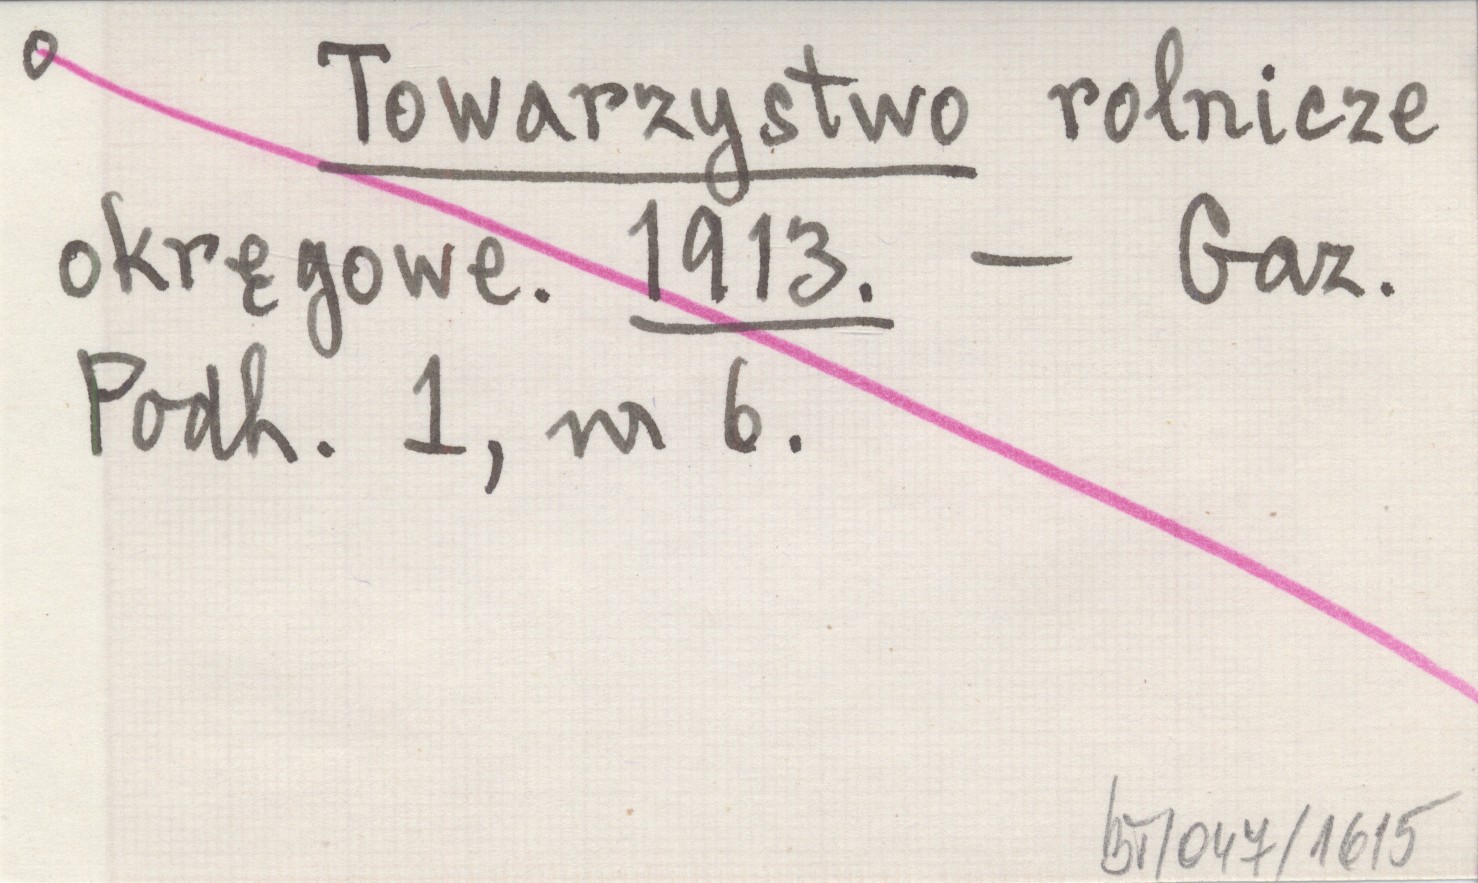 o Towarzystwo rolnicze
okręgowe. 1913. — Gaz.
Podh. 1, nr 6.
/047/1615